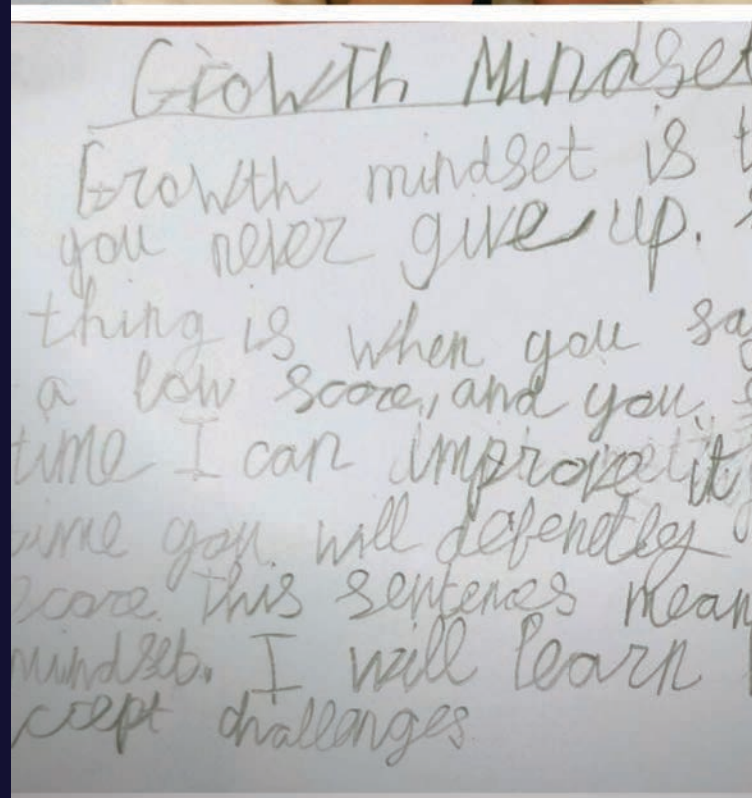 Growth Mindset
Growth mindset is t
you never give up.
thing is when you sa
a low score, and you, s
time I can improve it
ime you will defenetley
score. This sentences mean
mindset. I will learn
ccept challenges.